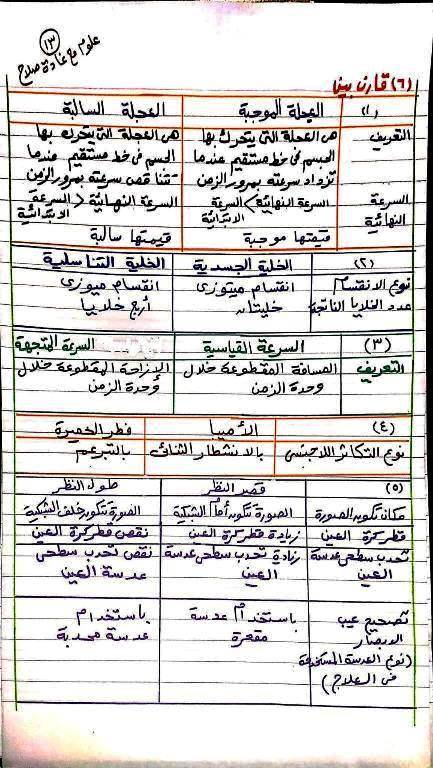 ١٣
علوم مع غادة صلاح
(٦) قارن بين :
(١) العجلة الموجبة العجلة السالبة
التعريف هى العجلة التى يتحرك بها هى العجلة التى يتحرك بها
الجسم فى خط مستقيم عندما الجسم فى خط مستقيم عندما
تزداد سرعته بمرور الزمن تتناقص سرعته بمرور الزمن
السرعة النهائية السرعة النهائية > السرعة الابتدائية السرعة النهائية < السرعة الابتدائية
قيمتها موجبة قيمتها سالبة
(٢) الخلية الجسدية الخلية التناسلية
نوع الانقسام انقسام ميتوزى انقسام ميوزى
عدد الخلايا الناتجة خليتان أربع خلايا
(٣) السرعة القياسية السرعة المتجهة
التعريف المسافة المقطوعة خلال الإزاحة المقطوعة خلال
وحدة الزمن وحدة الزمن
(٤) الأميبا فطر الخميرة
نوع التكاثر اللاجنسى بالانشطار الثنائى بالتبرعم
(٥) قصر النظر طول النظر
مكان تكون الصورة الصورة تتكون أمام الشبكية الصورة تتكون خلف الشبكية
قطر كرة العين زيادة قطر كرة العين نقص قطر كرة العين
تحدب سطحى عدسة زيادة تحدب سطحى عدسة نقص تحدب سطحى
العين العين عدسة العين
تصحيح عيب باستخدام عدسة باستخدام
الابصار مقعرة عدسة محدبة
(نوع العدسة المستخدمة
فى العلاج)